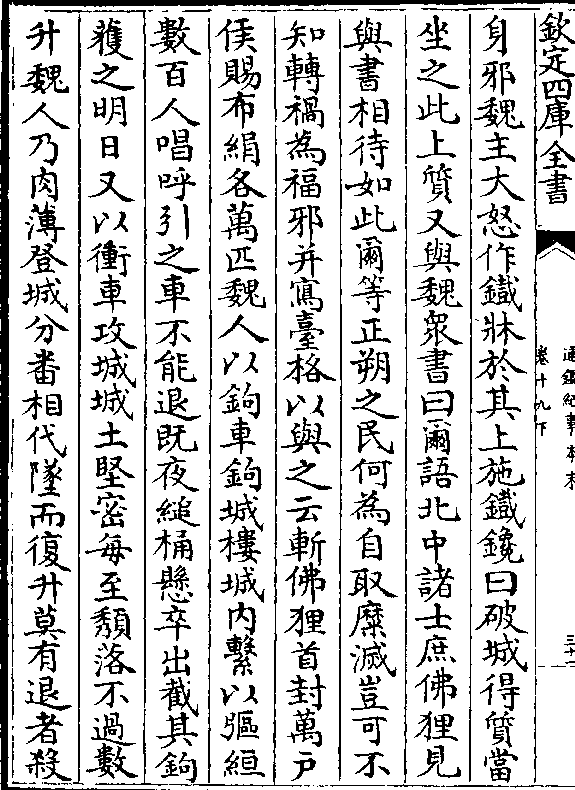 欽定四庫全書
通鑑紀事本末
卷十九下
三十一
身邪魏主大怒作鐵牀於其上施鐵鑱曰破城得質當
坐之此上質又與魏衆書曰爾語北中諸士庶佛狸見
與書相待如此爾等正朔之民何為自取糜滅豈可不
知轉禍為福邪并寫臺格以與之云斬佛狸首封萬戶
侯賜布絹各萬匹魏人以鉤車鉤城樓城内繫以彄絙
數百人唱呼引之車不能退既夜縋桶懸卒出截其鉤
獲之明日又以衝車攻城城土堅密每至頹落不過數
升魏人乃肉薄登城分番相代墜而復升莫有退者殺